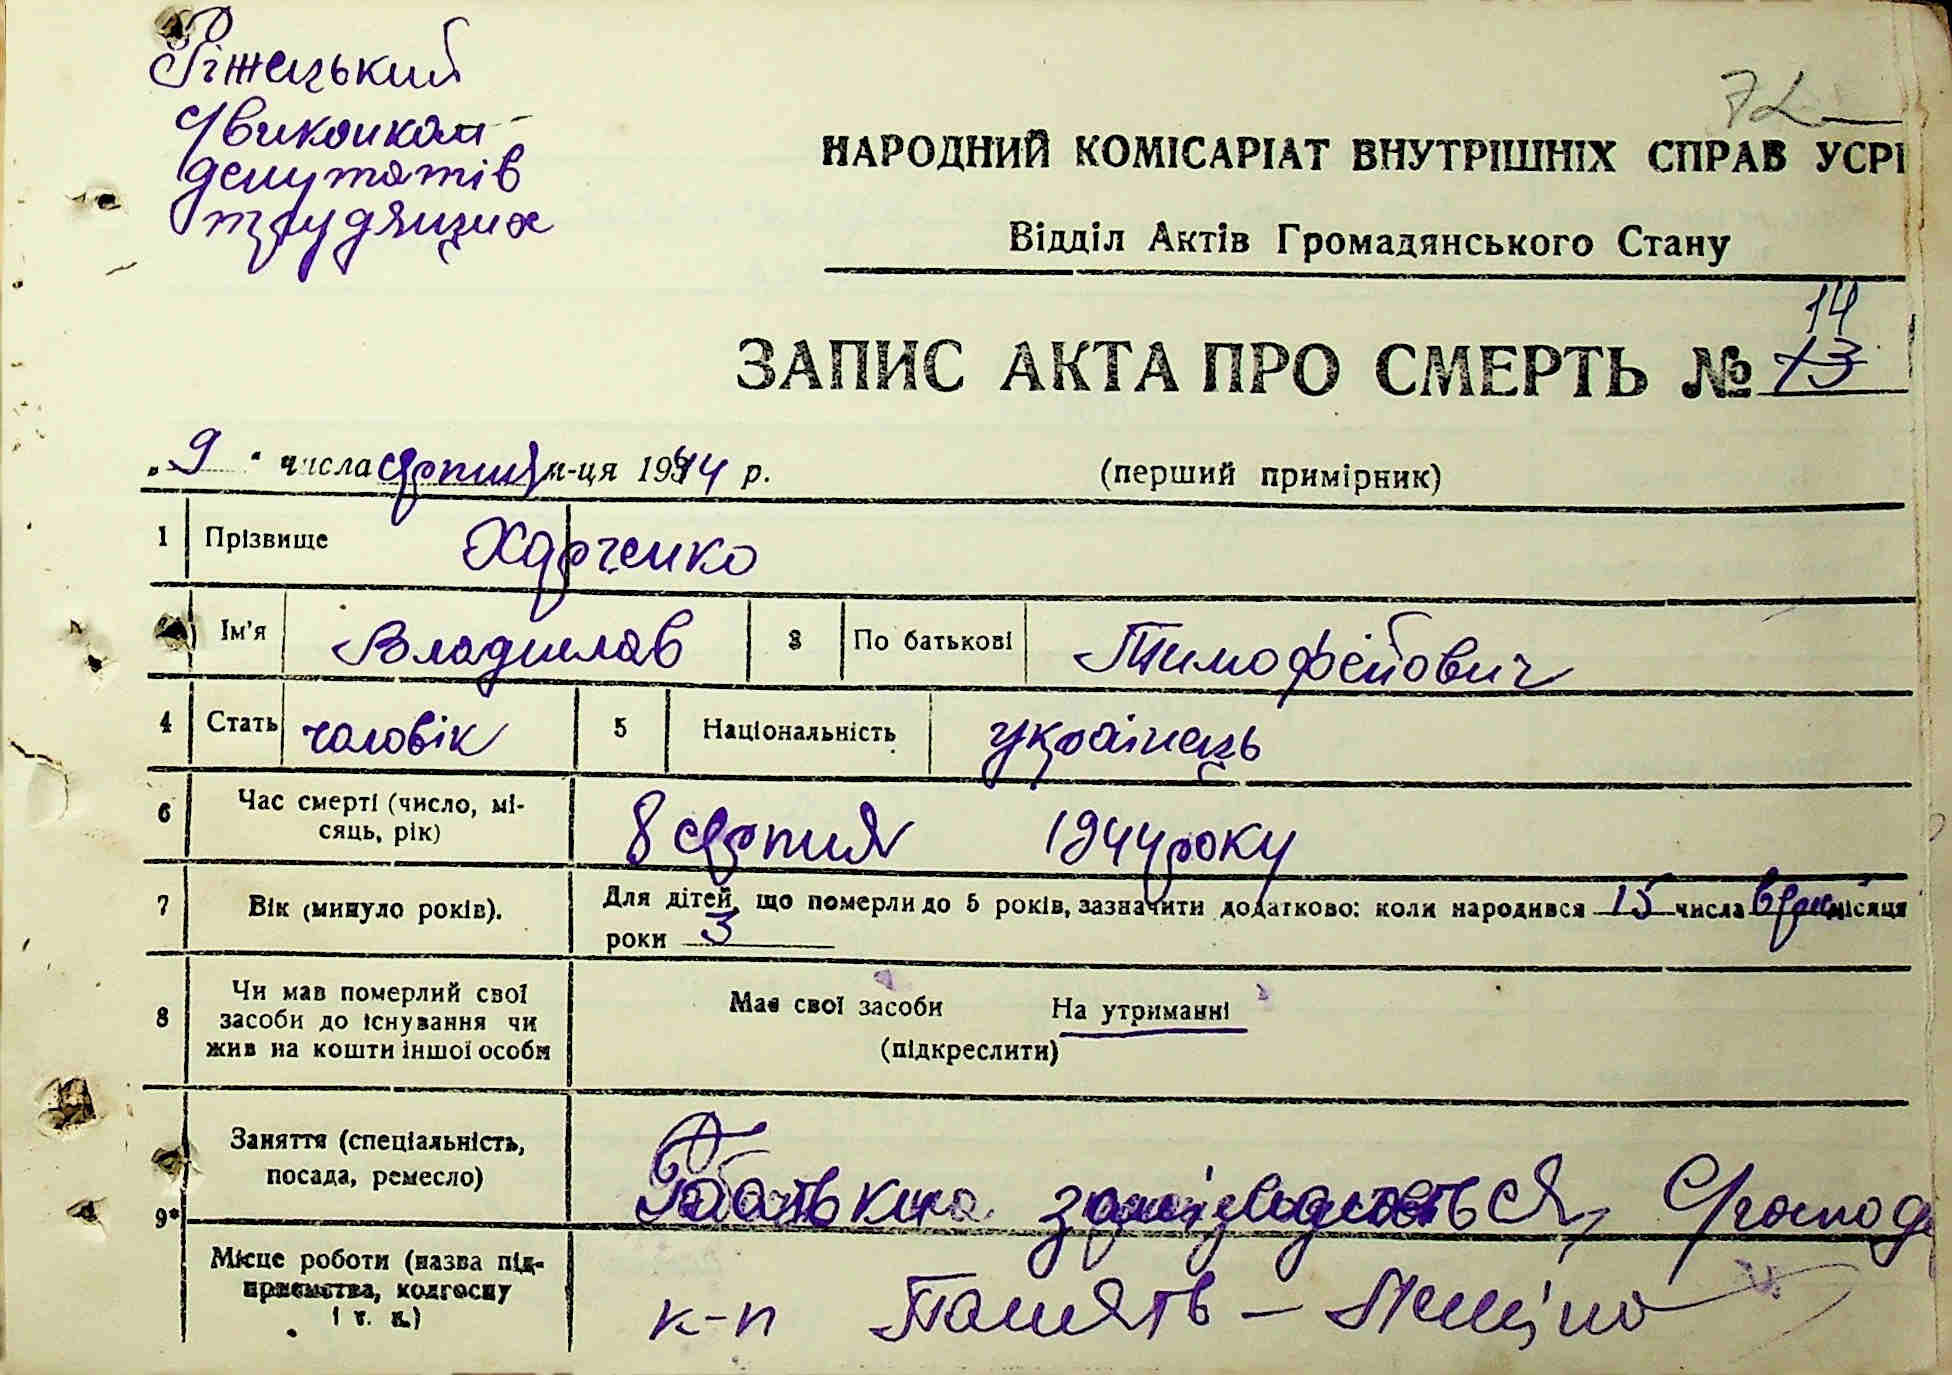 72
Ріжецький
виконком
депутатів
трудящих
НАРОДНИЙ КОМІСАРІАТ ВНУТРІШНІХ СПРАВ УСРР
Відділ Актів Громадянського Стану
14
ЗАПИС АКТА ПРО СМЕРТЬ № 13
„ 9 “ числа серпня м-ця 1944 р. (перший примірник)
1 Прізвище Харченко
Ім’я Владислав 3 По батькові Тимофейович
4 Стать чоловік 5 Національність українець
6 Час смерті (число, мі-
сяць, рік) 8 серпня 1944 року
7 Вік (минуло років). Для дітей, що померли до 5 років, зазначити додатково: коли народився 15 числа місяця
роки 3
8 Чи мав померлий свої
засоби до існування чи
жив на кошти іншої особи
Має свої засоби На утриманні
(підкреслити)
9* Заняття (спеціальність,
посада, ремесло)
Місце роботи (назва під-
приємства, колгоспу
і т. п.)
к-п Память-Леніна